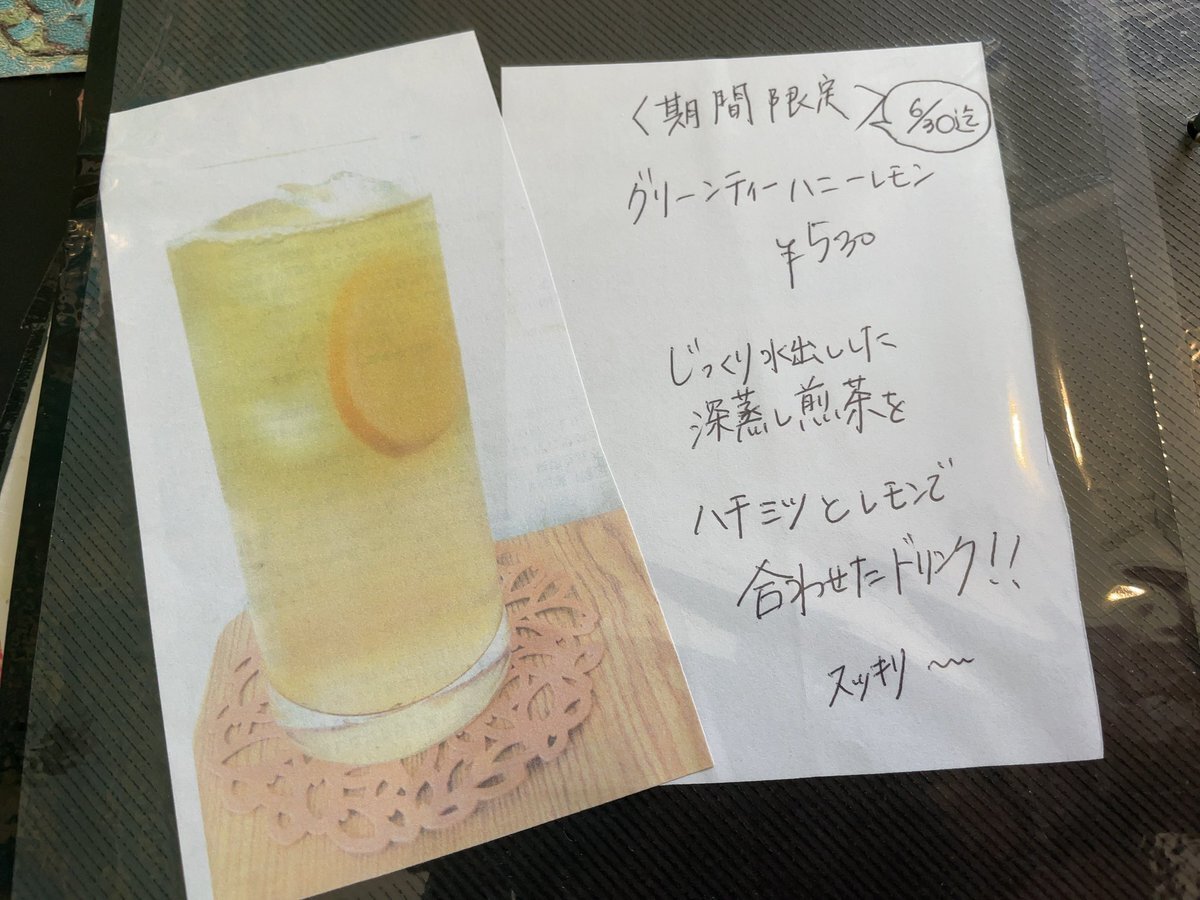 <期間限定> 6/30迄
グリーンティーハニーレモン
¥530
じっくり水出しした
深蒸し煎茶を
ハチミツとレモンで
合わせたドリンク!!
スッキリ〜